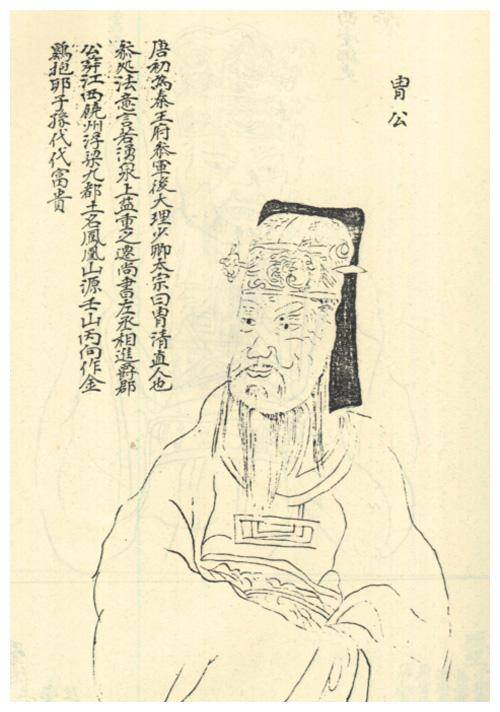 胄公
唐初為秦王府叅軍後大理少卿太宗曰胄清直人也
叅处法意言若湧泉上益重之遷尚書左丞相進爵郡
公葬江西饒州浮梁九都土名鳳凰山源壬山丙向作金
鷄抱卵子孫代代富貴